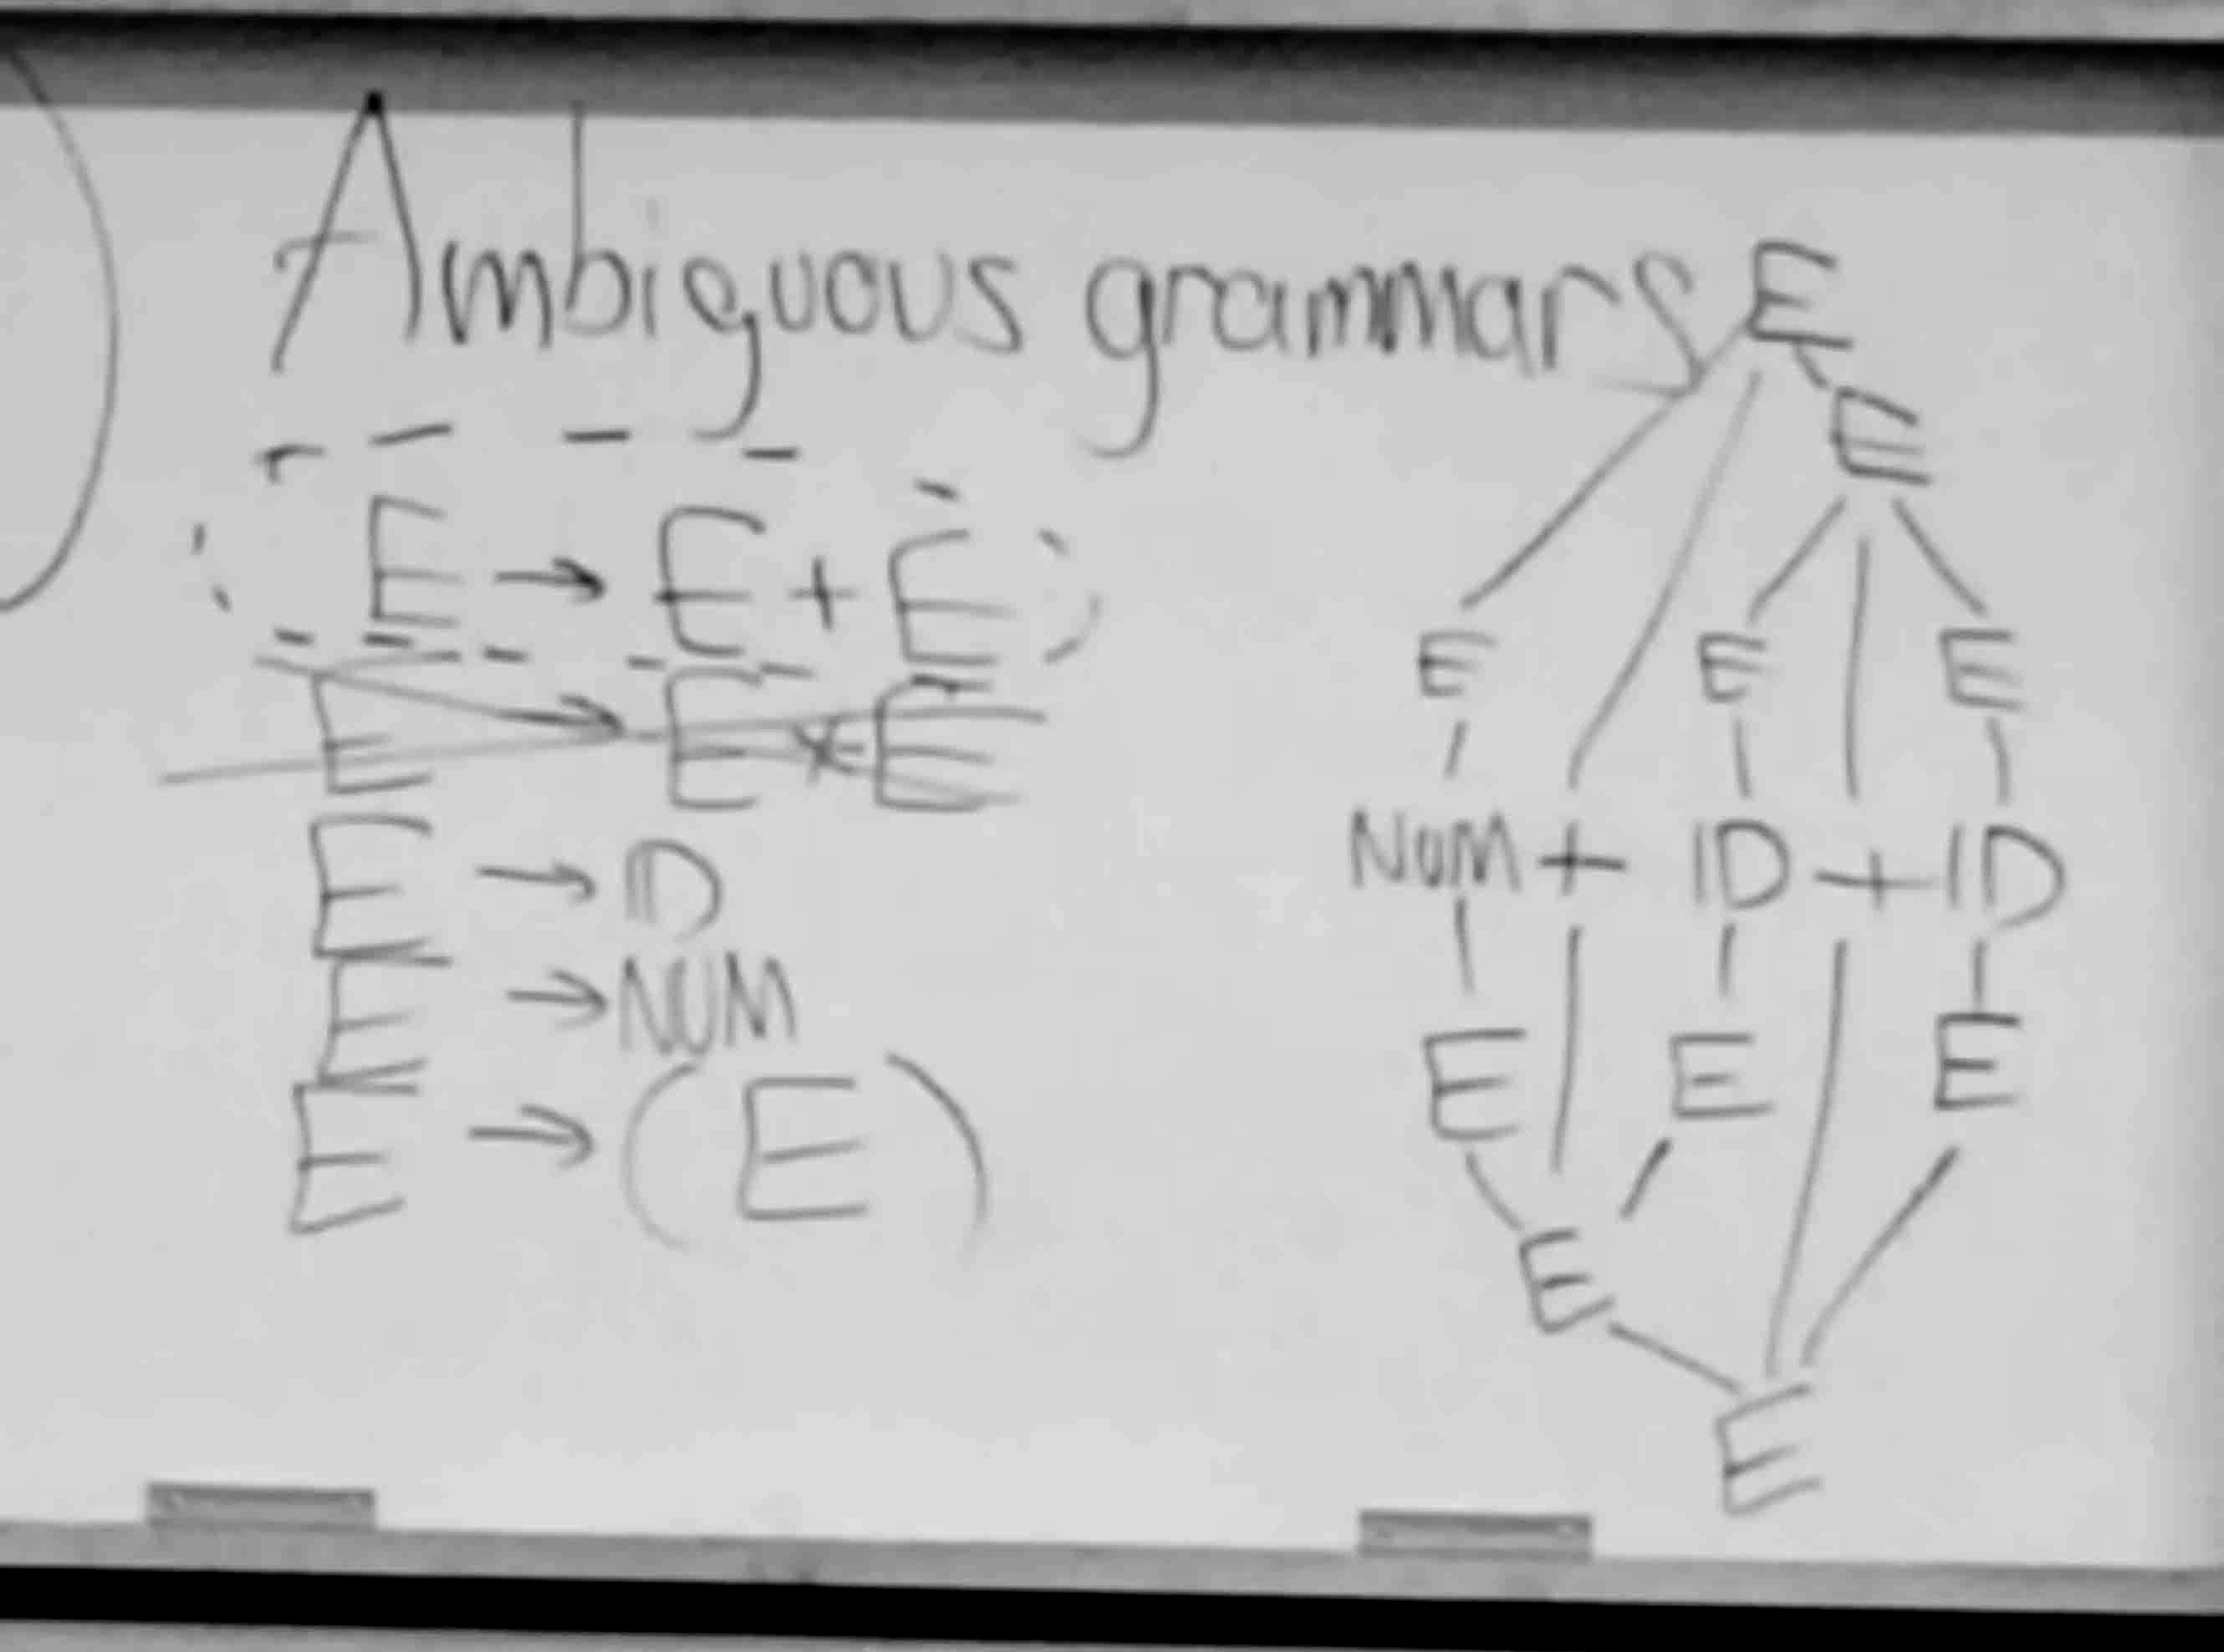 Ambiguous grammars
E → E + E
E → E * E
E → ID
E → NUM
E → ( E )
E
E
E E E
NUM + ID + ID
E E E
E
E